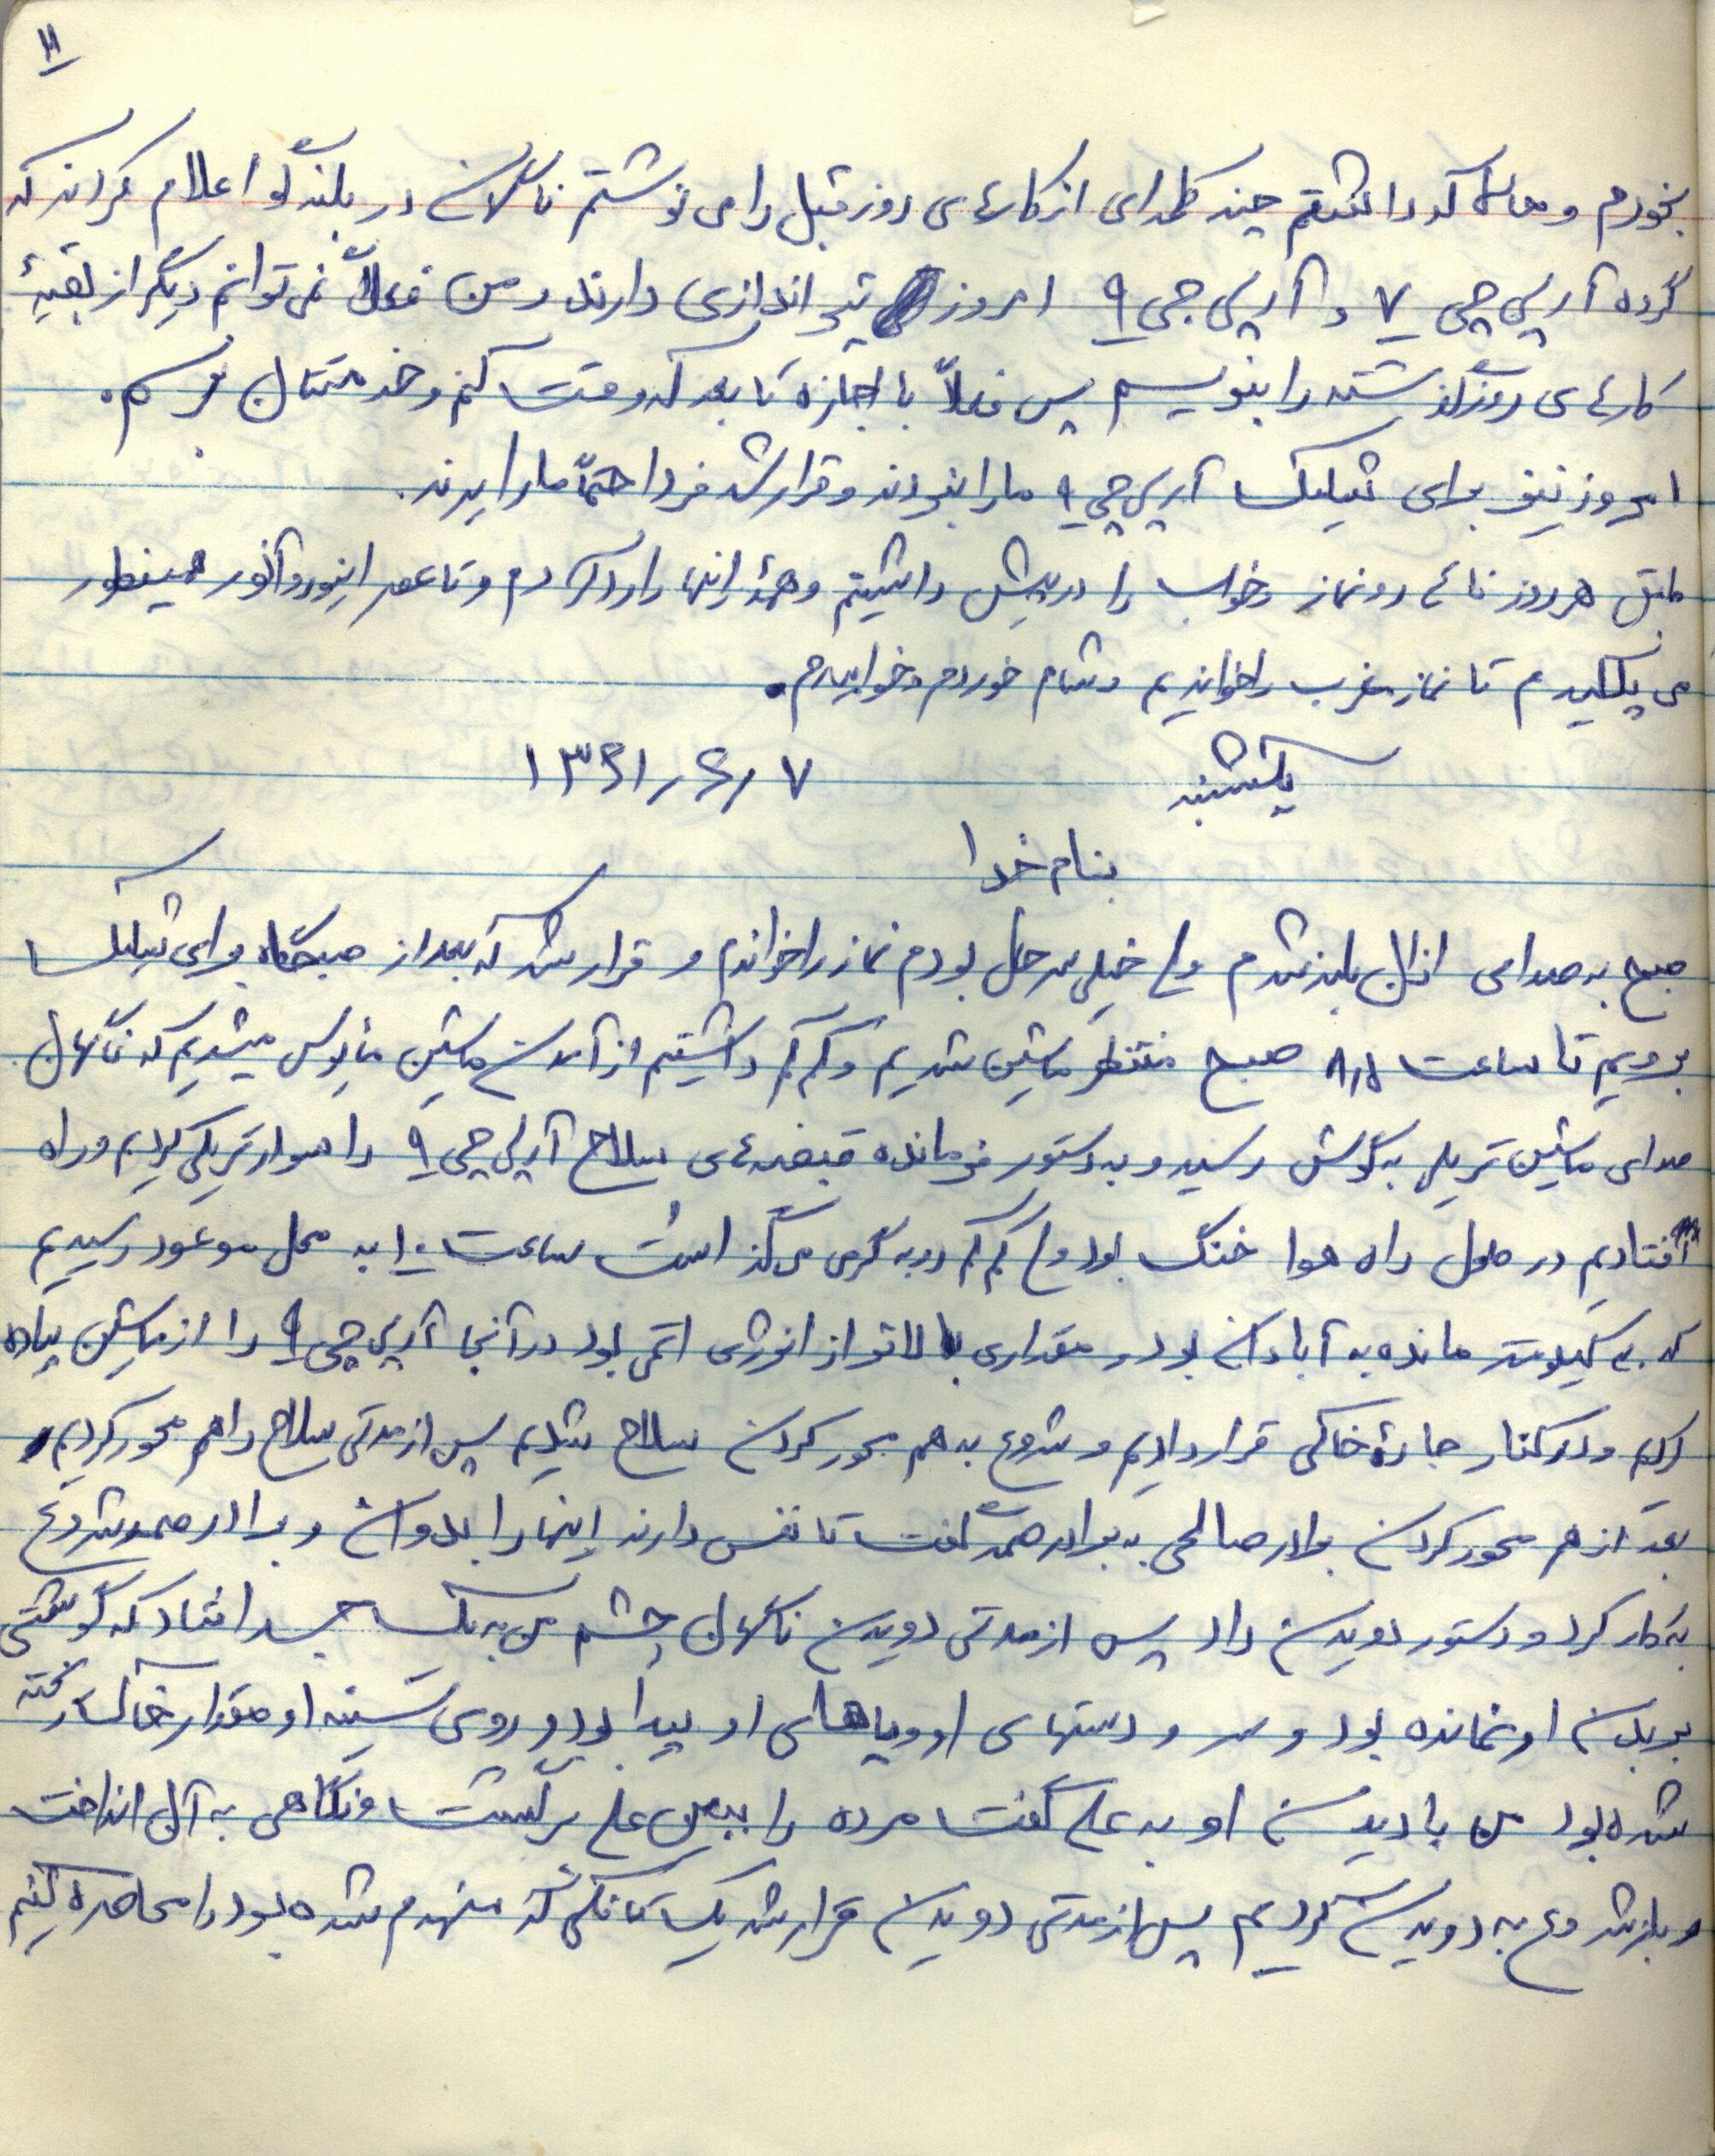 ۱۱
بخورم و همانطور که داشتم چند کلمه‌ای از کارهای روز قبل را می نوشتم ناگهان در بلندگو اعلام کردند که
گروه آرپی جی ۷ و آرپی جی ۹ امروز تیراندازی دارند و من فعلاً نمی توانم دیگر از بقیهٔ
کارهای روز گذشته را بنویسم پس فعلاً با اجازه تا بعد که وقت کنم و خدمتتان برسم.
امروز نیز برای شلیک آرپی جی ۹ ما را نبردند و قرار شد فردا حتماً ما را ببرند.
طبق هر روز ناهار و نماز و خواب را در پیش داشتیم و همهٔ اینها را رد کردم و تا عصر اینور و آنور همینطور
می پلکیدم تا نماز مغرب را خواندیم و شام خوردم و خوابیدم.
یکشنبه ۱۳۶۱/۶/۷
بنام خدا
صبح به صدای اذان بلند شدم ولی خیلی سرحال بودم نماز را خواندم و قرار شد که بعد از صبحگاه برای شلیک
برویم تا ساعت ۸/۵ صبح منتظر ماشین شدیم و کم کم داشتیم از آمدن ماشین مأیوس میشدیم که ناگهان
صدای ماشین تریلی به گوش رسید و به دستور فرمانده قبضه‌های سلاح آرپی جی ۹ را سوار تریلی کردیم و راه
افتادیم در طول راه هوا خنک بود ولی کم کم رو به گرمی می گذاشت ساعت ۱۰ به محل موعود رسیدیم
که ۲۰ کیلومتر مانده به آبادان بود و مقداری بالاتر از انرژی اتمی بود در آنجا آرپی جی ۹ را از ماشین پیاده
کردیم و در کنار جادهٔ خاکی قرار دادیم و شروع به هم محور کردن سلاح شدیم پس از مدتی سلاح را هم محور کردیم
بعد از هم محور کردن برادر صالحی به برادر صمد گفت تا نفس دارند اینها را بدوان و برادر صمد شروع
به کار کرد و دستور دویدن داد پس از مدتی دویدن ناگهان چشم من به یک جسد افتاد که گوشتی
بر بدن او نمانده بود و سر و دستهای او و پاهای او پیدا بود و روی سینه او مقدار خاک ریخته
شده بود من با دیدن او به علی گفت مرده را ببین علی برگشت و نگاهی به آن انداخت
و باز شروع به دویدن کردیم پس از مدتی دویدن قرار شد یک تانکی که منهدم شده بود را محاصره کنیم